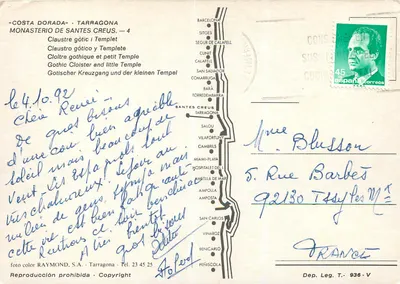 "COSTA DORADA" - TARRAGONA
MONASTERIO DE SANTES CREUS. — 4
Claustre gòtic i Templet
Claustro gótico y Templete
Cloître gothique et petit Temple
Gothic Cloister and little Temple
Gotischer Kreuzgang und der kleinen Tempel
le 4.10.92
Chère Renée
De gros bisous
d'une bien agréable
soleil mais beaucoup de
vent. Les Espagnols sont
très chaleureux! Séjour au
milieu de gens sympa mais
cette vie est bien
A très bientôt
gros bisous
foto color RAYMOND, S.A. - Tarragona - Tel. 23 45 25
Reproducción prohibida - Copyright
BARCELONA
SITGES
CUNIT
SEGUR DE CALAFELL
CALAFELL
SAN SALVADOR
COMARRUGA
BARA
TORREDEMBARRA
SANTES CREUS
TARRAGONA
SALOU
VILAFORTUNY
CAMBRILS
MIAMI-PLAYA
HOSPITALET DE
AMETLLA DE MAR
AMPOLLA
AMPOSTA
SAN CARLOS
VINAROZ
BENICARLO
PEÑISCOLA
45
españa
correos
Mme Blusson
5. Rue Barbès
92130 Issy les Mx
FRANCE
Dep. Leg. T.- 936 - V